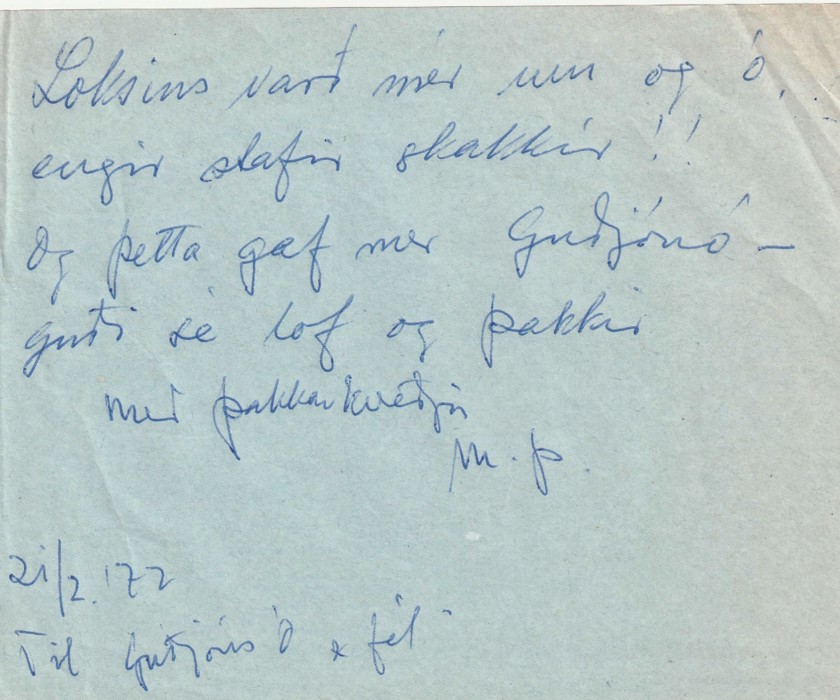 Loksins varð mér um og ó,
engir stafir skakkir!!
Og þetta gaf mér Guðjónó –
guði sé lof og þakkir
með þakkarkveðju
M.Þ.
21/2. '72
Til Guðjóns Ó & fél.